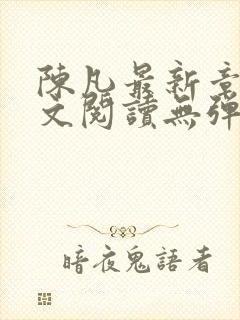 陳凡最新章
文閱讀無彈
暗夜鬼語者